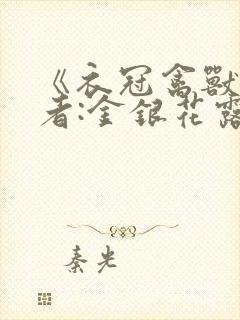 《衣冠禽獸
者:金银花露
秦光